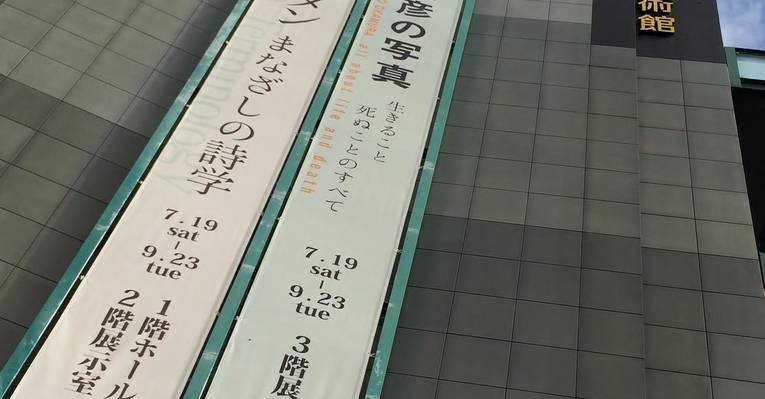 術館
彦の写真
生きること
死ぬことのすべて
all about life and death
7.19
sat
-
9.23
tue
3階展
タン まなざしの詩学
7.19
sat
-
9.23
tue
1階ホール
2階展示室